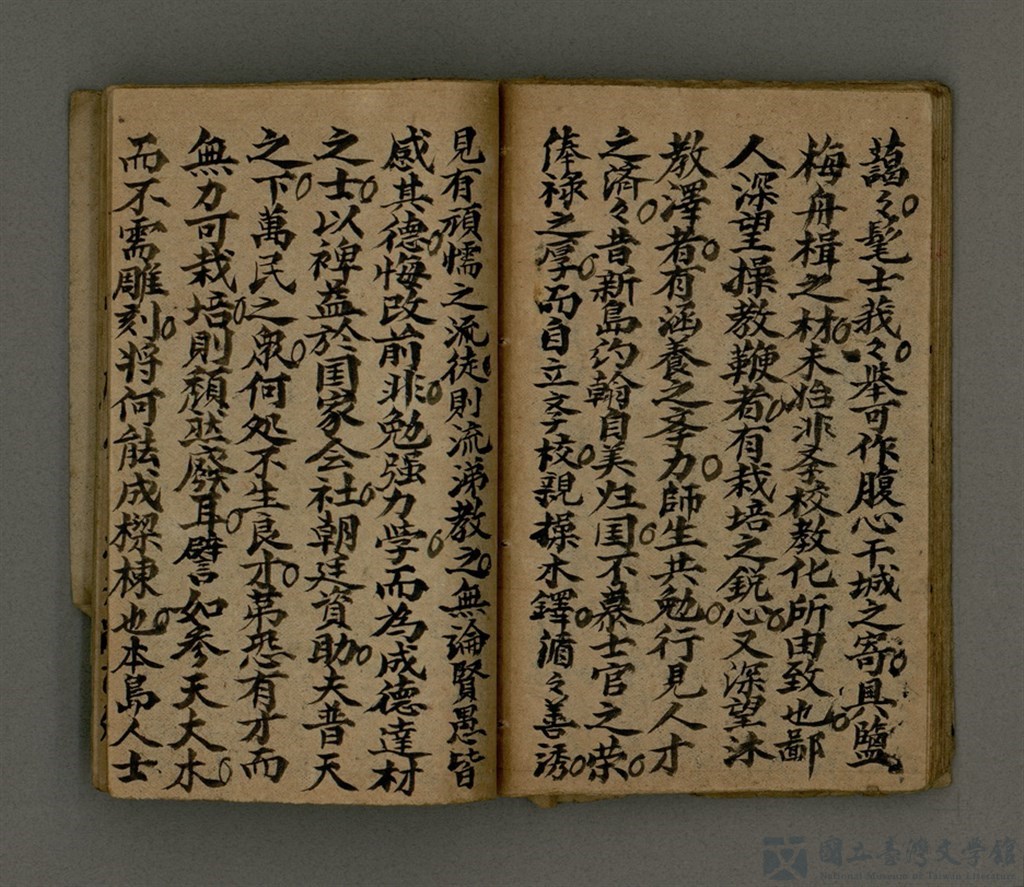 藹々髦士莪々。舉可作腹心干城之寄。具鹽
梅舟楫之材。未始非斈校教化所由致也。鄙
人深望操教鞭者。有栽培之鋭心。又深望沐
教澤者。有涵養之斈力。師生共勉。行見人才
之濟々。昔新島約翰自美归国。不慕士官之荣。
俸禄之厚。而自立斈校。親操木鐸。循々善誘。
見有頑懦之流徒。則流涕教之。無論賢愚皆
感其德。悔改前非。勉强力学。而為成德達材
之士。以裨益於国家会社。朝廷資助。夫普天
之下。萬民之衆。何処不生良才。苐恐有才而
無力可栽培。則頽然廢耳。譬如参天大木。
而不需雕刻。将何能成樑棟也。本島人士
國立臺灣文學館
National Museum of Taiwan Literature